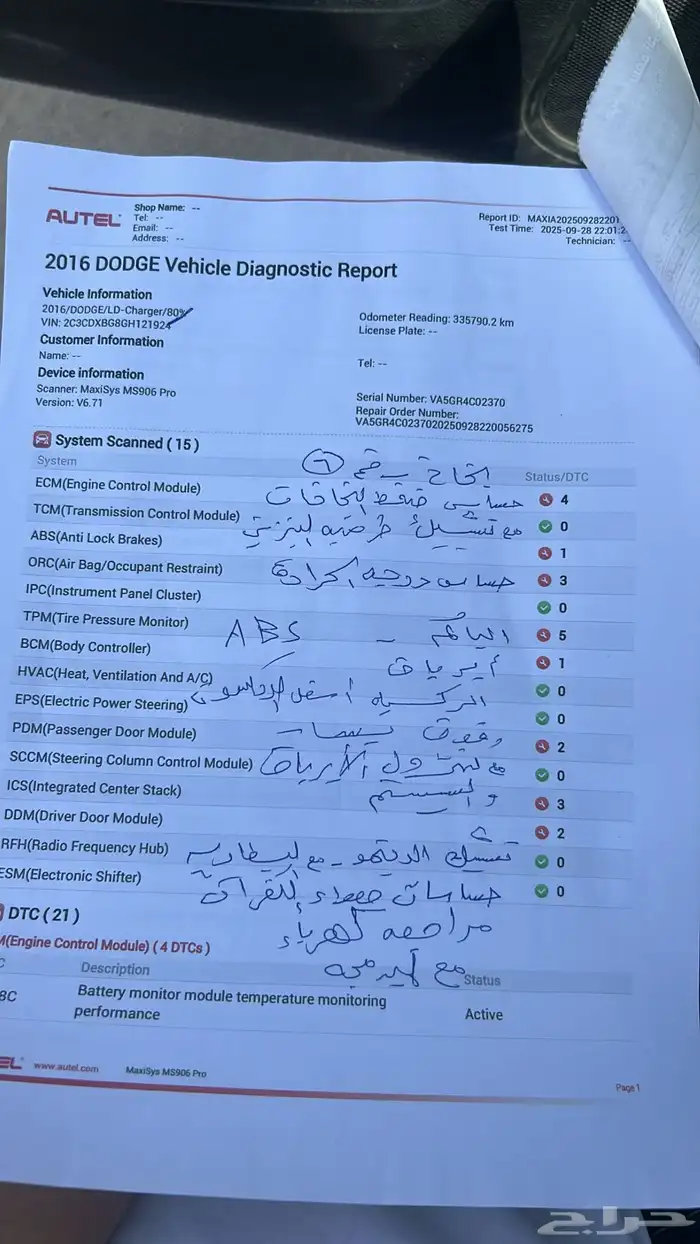 AUTEL
Shop Name: --
Tel: --
Email: --
Address: --
Report ID: MAXIA20250928220
Test Time: 2025-09-28 22:01:2
Technician: --
2016 DODGE Vehicle Diagnostic Report
Vehicle Information
2016/DODGE/LD-Charger/80%
VIN: 2C3CDXBG8GH121924
Customer Information
Name: --
Device information
Scanner: MaxiSys MS906 Pro
Version: V6.71
Odometer Reading: 335790.2 km
License Plate: --
Tel: --
Serial Number: VA5GR4C02370
Repair Order Number:
VA5GR4C0237020250928220056275
System Scanned ( 15 )
System Status/DTC
ECM(Engine Control Module) 4
TCM(Transmission Control Module) 0
ABS(Anti Lock Brakes) 1
ORC(Air Bag/Occupant Restraint) 3
IPC(Instrument Panel Cluster) 0
TPM(Tire Pressure Monitor) 5
BCM(Body Controller) 1
HVAC(Heat, Ventilation And A/C) 0
EPS(Electric Power Steering) 0
PDM(Passenger Door Module) 2
SCCM(Steering Column Control Module) 0
ICS(Integrated Center Stack) 3
DDM(Driver Door Module) 2
RFH(Radio Frequency Hub) 0
ESM(Electronic Shifter) 0
حساس ضغط
مع طرمبه البنزين
حساس درجه الحرارة
ABS
أيرباق
مع
تشييك الدينمو - مع البطاريه
حساسات
مراجعه كهرباء
مع برمجه
DTC ( 21 )
(Engine Control Module) ( 4 DTCs )
Description Status
8C Battery monitor module temperature monitoring performance Active
www.autel.com MaxiSys MS906 Pro
Page 1
حراج